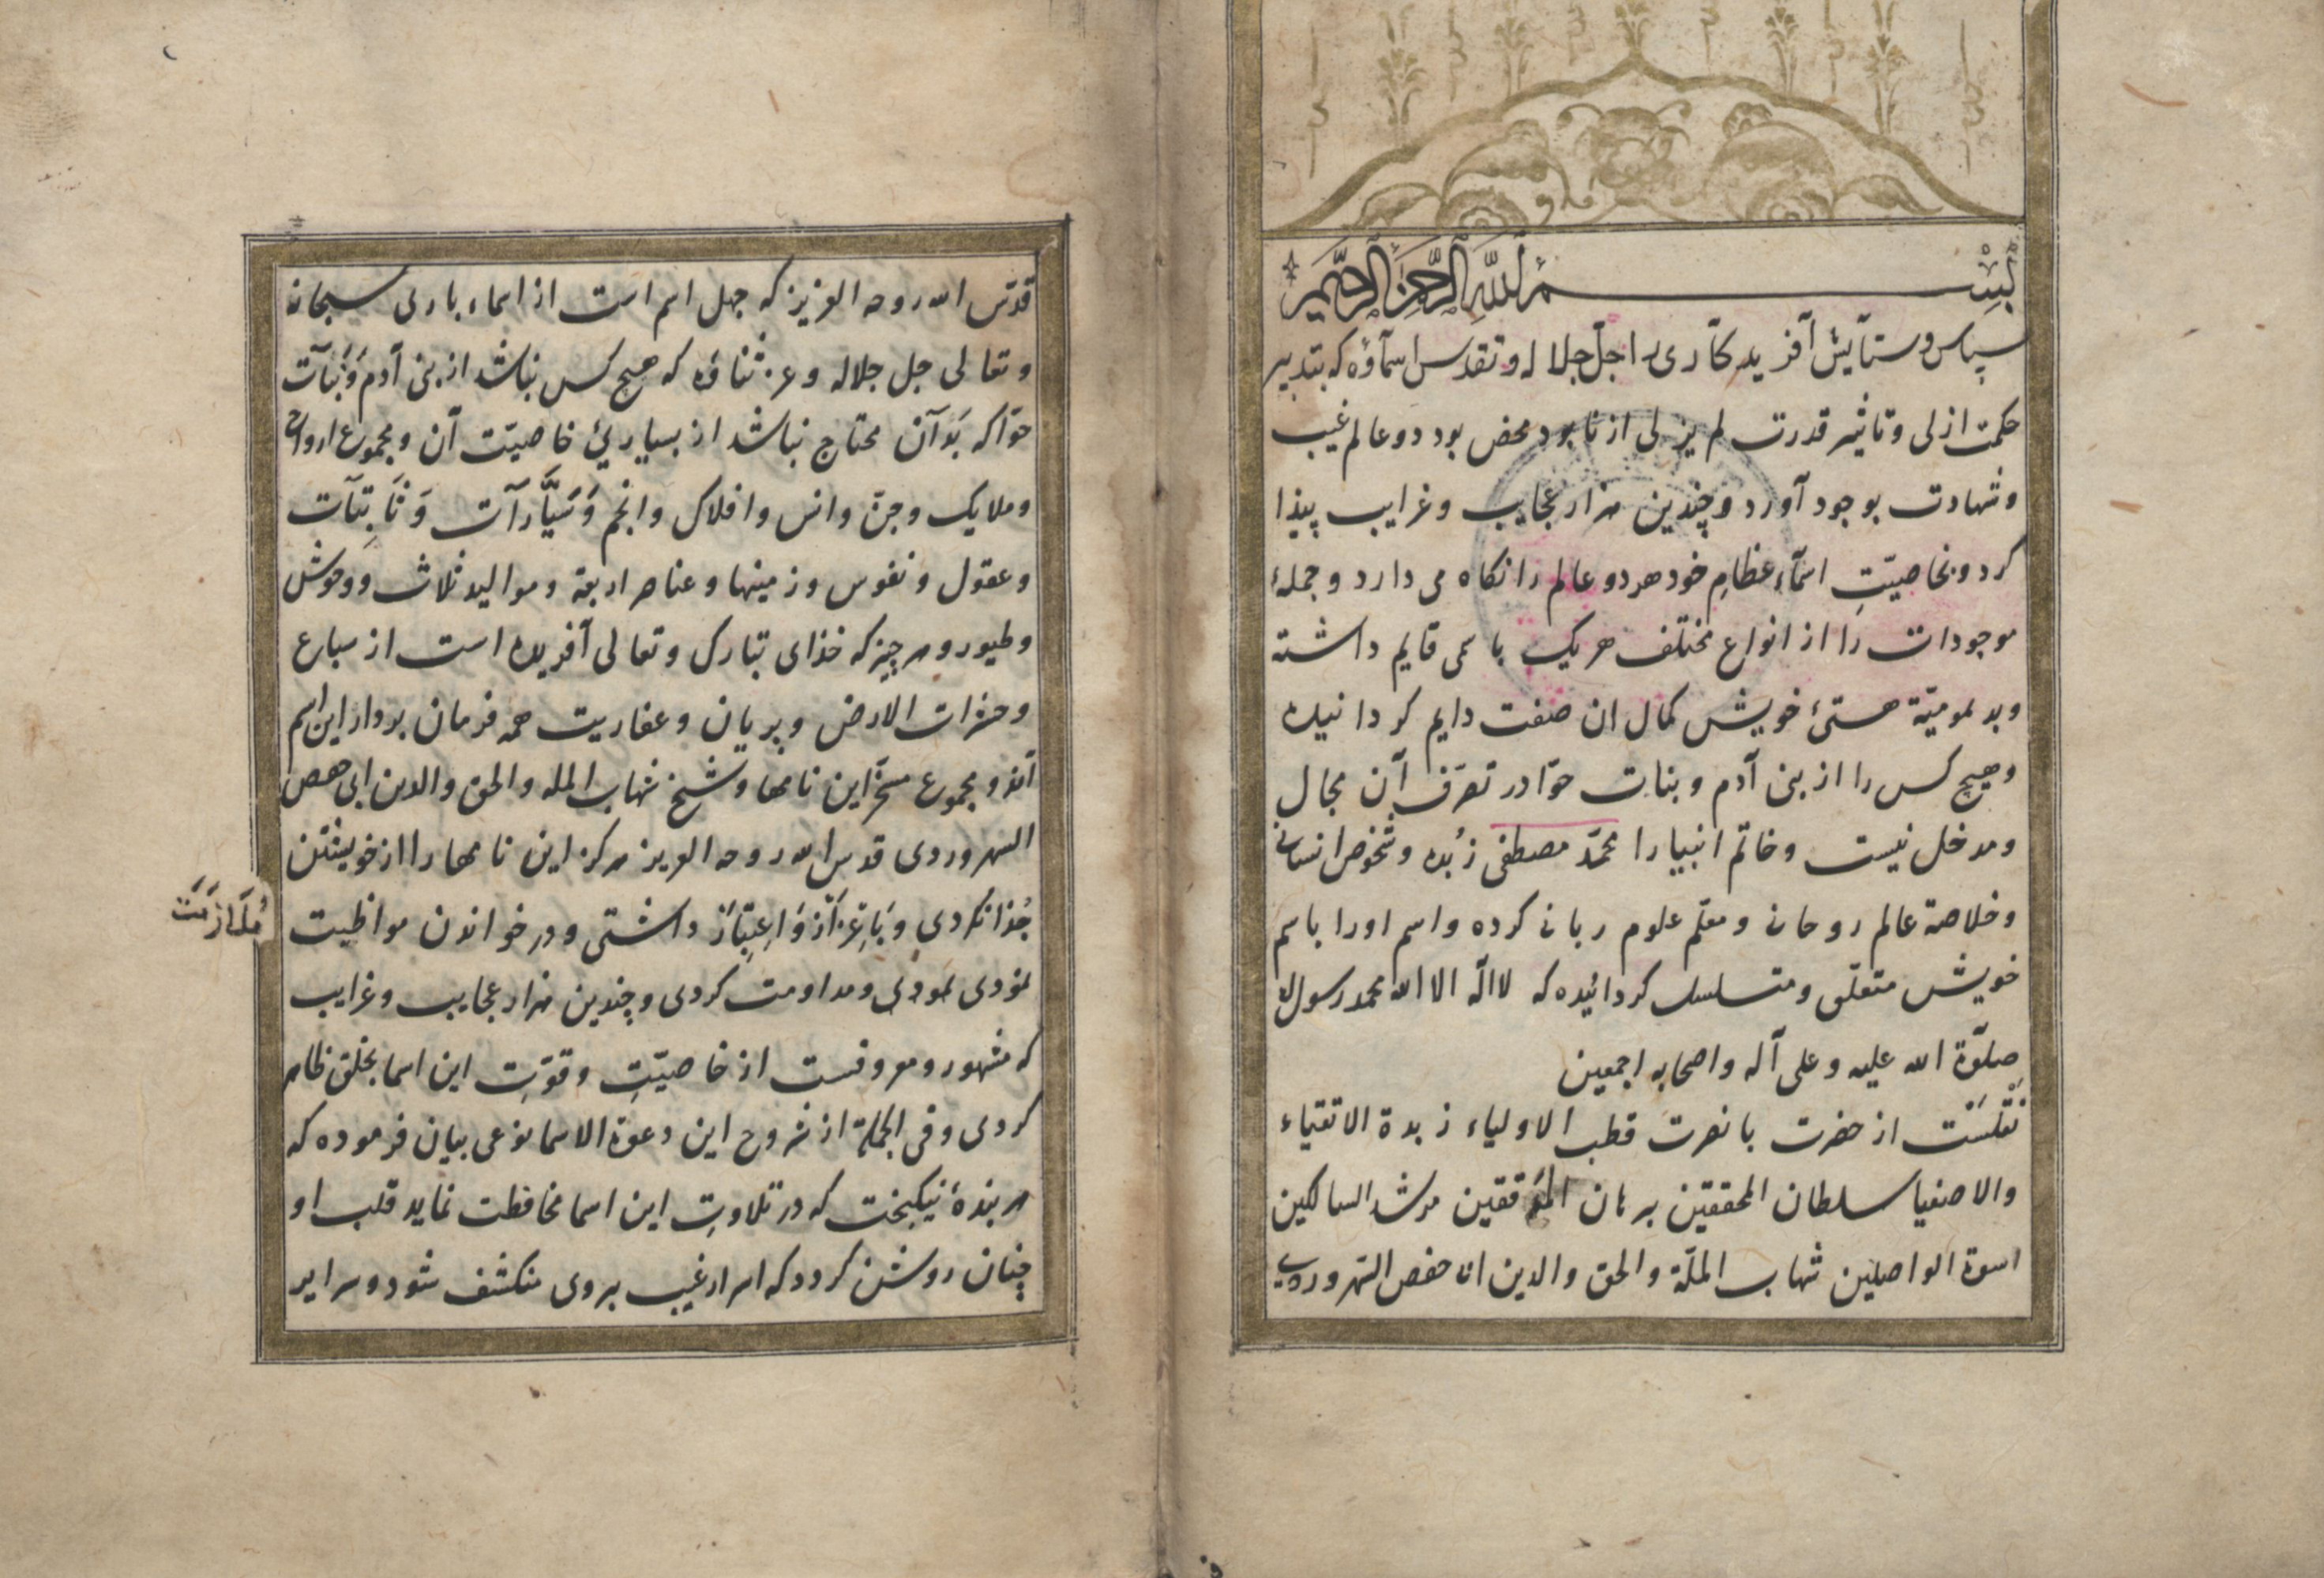 بسم الله الرحمن الرحيم
سپاس و ستآیش آفرید كآری را جلّ جلاله و تقدس اسمآؤه که بتدبیر
حکمت ازلی و تاثیر قدرت لم یزلی از نابود محض بود دو عالم غیب
و شهادت بوجود آورد و چندین هزار عجایب و غرایب پیذا
کرد و بخاصیّتِ اسمآء عظامِ خود هر دو عالم را نکاه می دارد و جملهٔ
موجودات را از انواع مختلف هر یک باسمی قایم داشته
و بدیمومیّة هستیٔ خویش کمال ان صفت دایم کردانیده
و هیچ کس را از بنی آدم و بنات حوّا در تصرّف آن مجال
و مدخل نیست و خاتم انبیا را محمّد مصطفی زُبده و شخوص انسانی
و خلاصهٔ عالم روحانی و معلّم علوم ربانی کرده و اسم او را باسم
خویش متعلّی و متسلسل کردانیده که لا اله الا الله محمد رسول الله
صلوٰة الله علیه و علی آله و اصحابه اجمعین
نَقْلَسْت از حضرت بانصرت قطب الاولیاء زبدة الاتقیاء
و الاصفیا سلطان المحققین برهان المدققین مرشد السالکین
اسوة الواصلین شهاب الملّة و الحق و الدین ابی حفص السّهروردی
قدّس الله روحه العزیز که چهل اسم است از اسماء باری سبحانه
و تعالی جل جلاله و عز ثناؤه که هیچ کس نباشد از بنی آدم وَ بَنآت
حوّا که بَدآن محتاج نباشد از بسیاریٔ خاصیّت آن و مجموع ارواح
و ملایک و جنّ و انس و افلاک و انجم وَ سَیَّارَآت وَ ثَابِتَآت
و عقول و نفوس و زمینها و عناصر اربعة و موالید ثلاث و وحوش
و طیور و هر چیز که خذای تبارک و تعالی آفریده است از سباع
و حشرات الارض و پریان و عفاریت همه فرمان بردار این اسم
آند و مجموع مسخّر این نامها و شیخ شهاب المله و الحق و الدین ابی حفص
السهروردی قدس الله روحه العزیز هرکز این نامها را از خویشتن
جُذا نکردی و بَاِعْزَآز وَ اِعتِبَآرْ داشتی و در خواندن مواظبت
مُلَازَمَتْ
نمودی نمودی و مداومت کردی و چندین هزار عجایب و غرایب
که مشهور و معروفست از خاصیّتِ و قوّتِ این اسما بخلق ظاهر
کردی و فی الجملة از شروح این دعوة الاسما نوعی بیان فرموده که
هر بندهٔ نیکبخت که در تلاوتِ این اسما محافظت نماید قلب او
چنان روشن کردد که اسرار غیب بر وی منکشف شود و سرایر